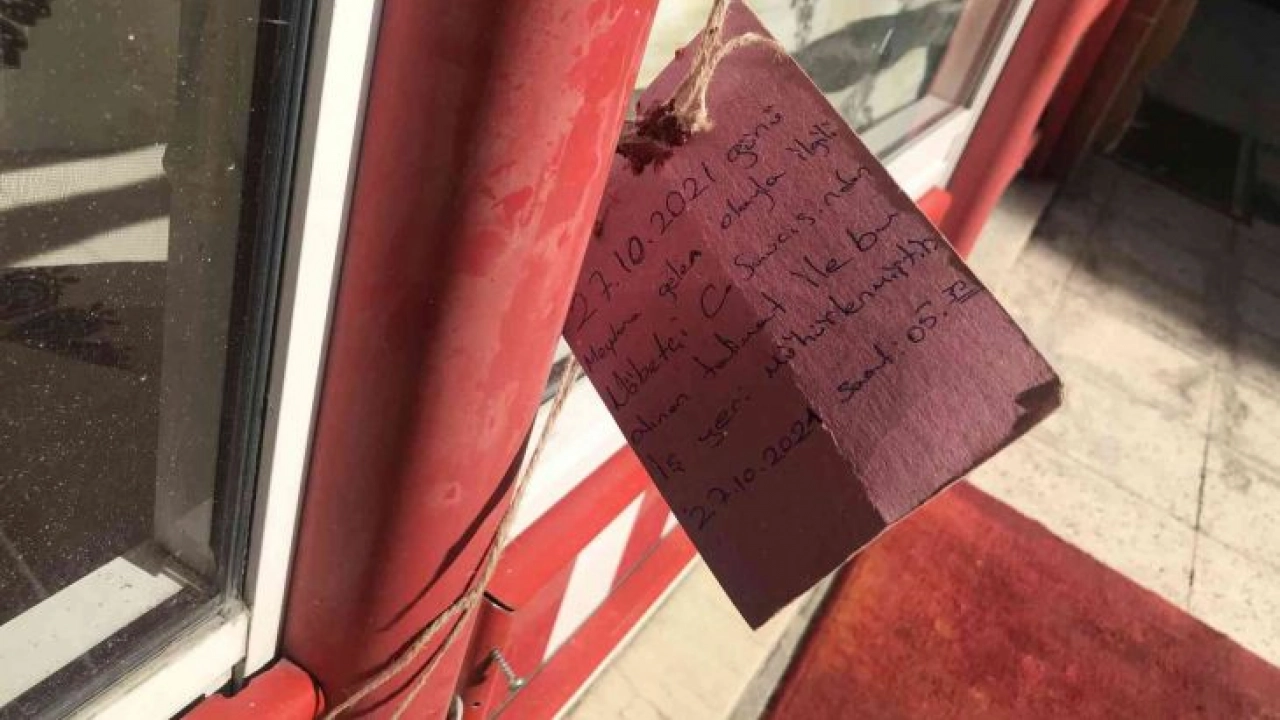 27.10.2021 günü
Meydana gelen olayla ilgili
Nöbetçi C. Savcısından
alınan talimat ile bu
İş yeri mühürlenmiştir.
27.10.2021 Saat: 05.30